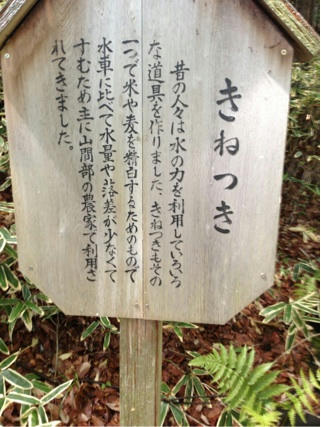 きねつき
昔の人々は水の力を利用していろいろ
な道具を作りました、きねつきもその
一つで米や麦を精白するためのもので
水車に比べて水量や落差が少なくて
すむため主に山間部の農家で利用さ
れてきました。